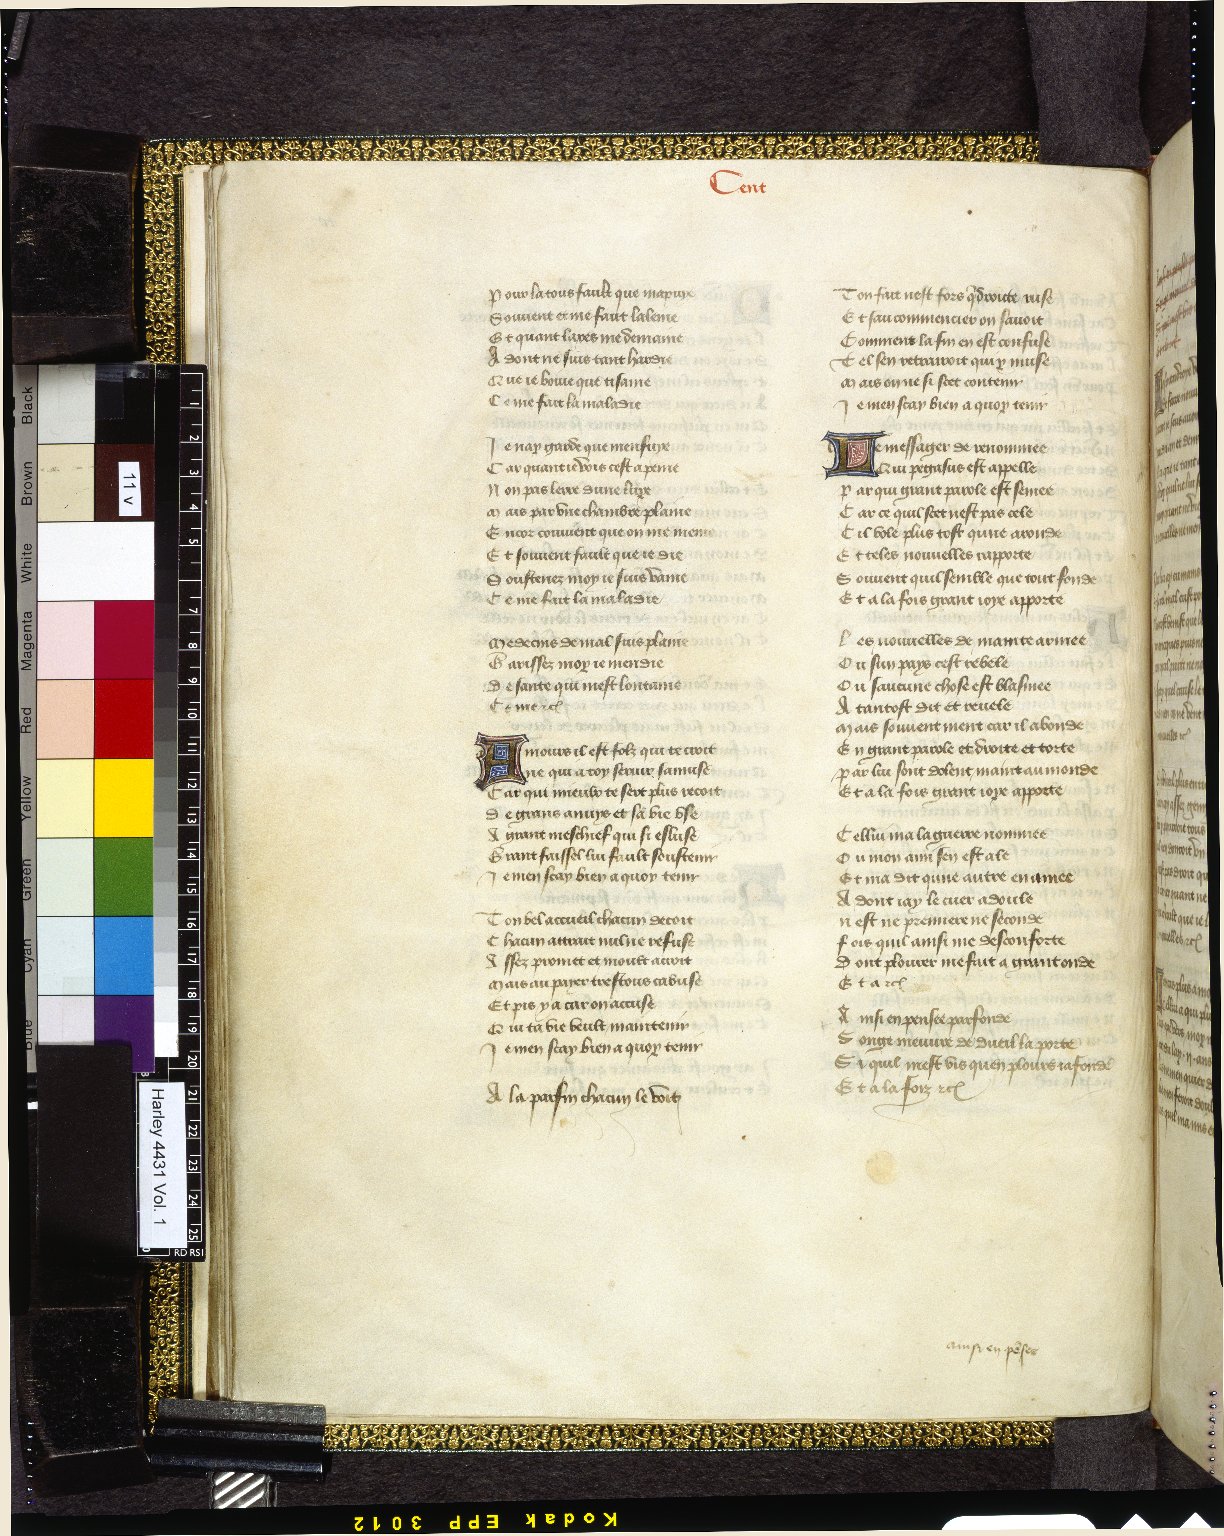 Cent
Pour la tous fault que mapuye
Souvent et me faut laleine
Et quant lares me demaine
Adont ne suis tant hardie
Que ie boive que tisanne
Ce me fait la maladie
Je nay garde que menfuye
Car quant ie vois cest a peine
Non pas lerre dune lieue
Mais par une chambre plaine
Encor convient que on me meine
Et souvent fault que ie die
Soustenez moy ie suis vaine
Ce me fait la maladie
Medecins de mal suis plaine
Garissez moy ie mendie
De sante qui mest lontaine
Ce me rc
Amours il est folz qui te croit
Ne qui a toy servir samuse
Car qui mieulx te sert plus recoit
De grans anuys et sa vie use
A grant meschief qui si esluse
Grant faissel lui fault soustenir
Je men scay bien a quoy tenir
Ton bel accueil chacun decoit
Chacun attrait nulne refuse
Assez promet et moult acroit
Mais au payer trestous cabuse
Et pis y a car on accuse
Qui ta vie veult maintenir
Je men scay bien a quoy tenir
A la parfin chacun le voit
Ton fait nest fors que droicte ruse
Et sau commencier on savoit
Comment la fin en est confuse
Tel sen retrairoit qui y muse
Mais on ne si scet contenir
Je men scay bien a quoy tenir
Le messager de renommee
Qui pegasus est appelle
Par qui grant parole est semee
Car ce quil scet nest pas cele
Cil vole plus tost qune aronde
Et teles nouvelles rapporte
Souvent quil semble que tout fonde
Et a la fois grant ioye apporte
Les nouvelles de mainte armee
Ou sun pays cest rebele
Ou saucune chose est blasmee
A tantost dit et revele
Mais souvent ment car il abonde
En grant parole et droite et torte
Par lui sont dolent maint au monde
Et a la fois grant ioye apporte
Cellui ma la guerre nommee
Ou mon ami sen est ale
Et ma dit qune autre en a amee
Adont iay le cuer adoule
Nest ne premiere ne seconde
Fois quil ainsi me desconforte
Dont plourer me fait a grant onde
Et a rc
Ainsi en pensee parfonde
Songe meuvre de dueil la porte
Si quil mest vis quen plours iafonde
Et a la foiz rc
ainsi en pensee
Black
Brown
White
Magenta
Red
Yellow
Green
Cyan
Blue
11 v
1
2
3
4
5
7
8
9
10
11
12
13
14
15
16
17
18
19
20
21
22
23
24
25
RD RSI
Harley 4431 Vol. 1
Kodak EPP 3012